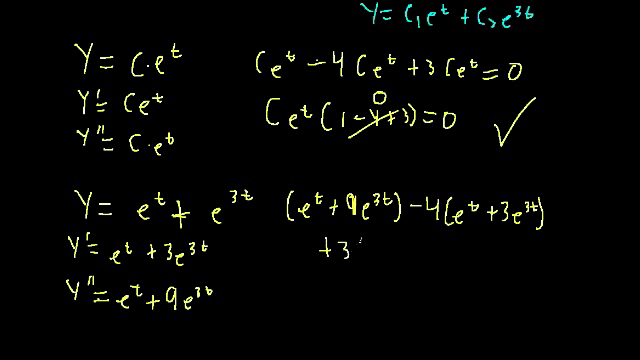 Y = C₁e^t + C₂e^3t
Y = C·e^t
Y' = Ce^t
Y" = C·e^t
Ce^t - 4Ce^t + 3Ce^t = 0
0
Ce^t(1-4+3) = 0 ✓
Y = e^t + e^3t
Y' = e^t + 3e^3t
Y" = e^t + 9e^3t
(e^t + 9e^3t) - 4(e^t + 3e^3t)
+3